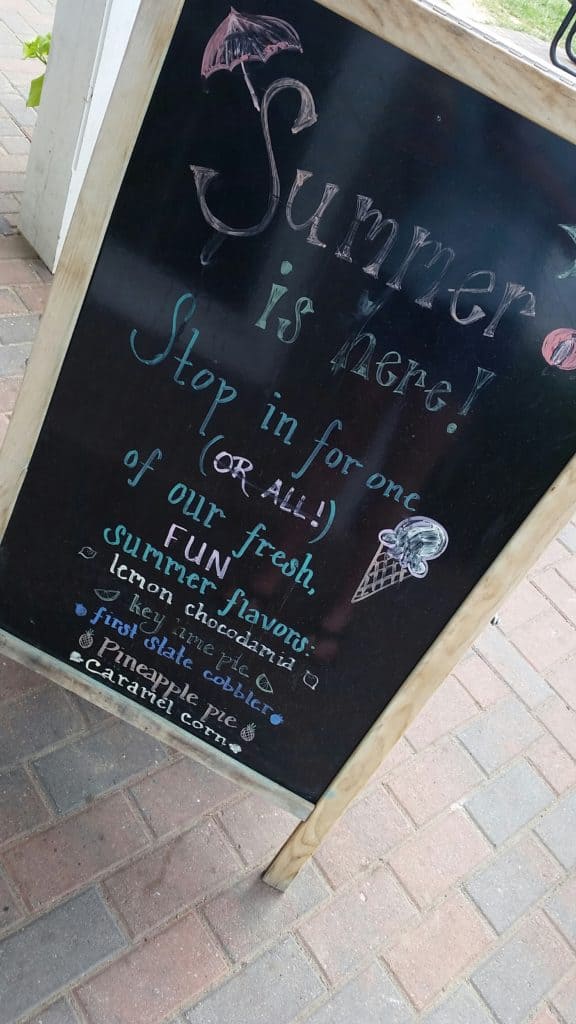 Summer
is here!
Stop in for one
(OR ALL!)
of our fresh,
FUN
summer flavors:
lemon chocodamia
key lime pie
first state cobbler
Pineapple pie
Caramel corn